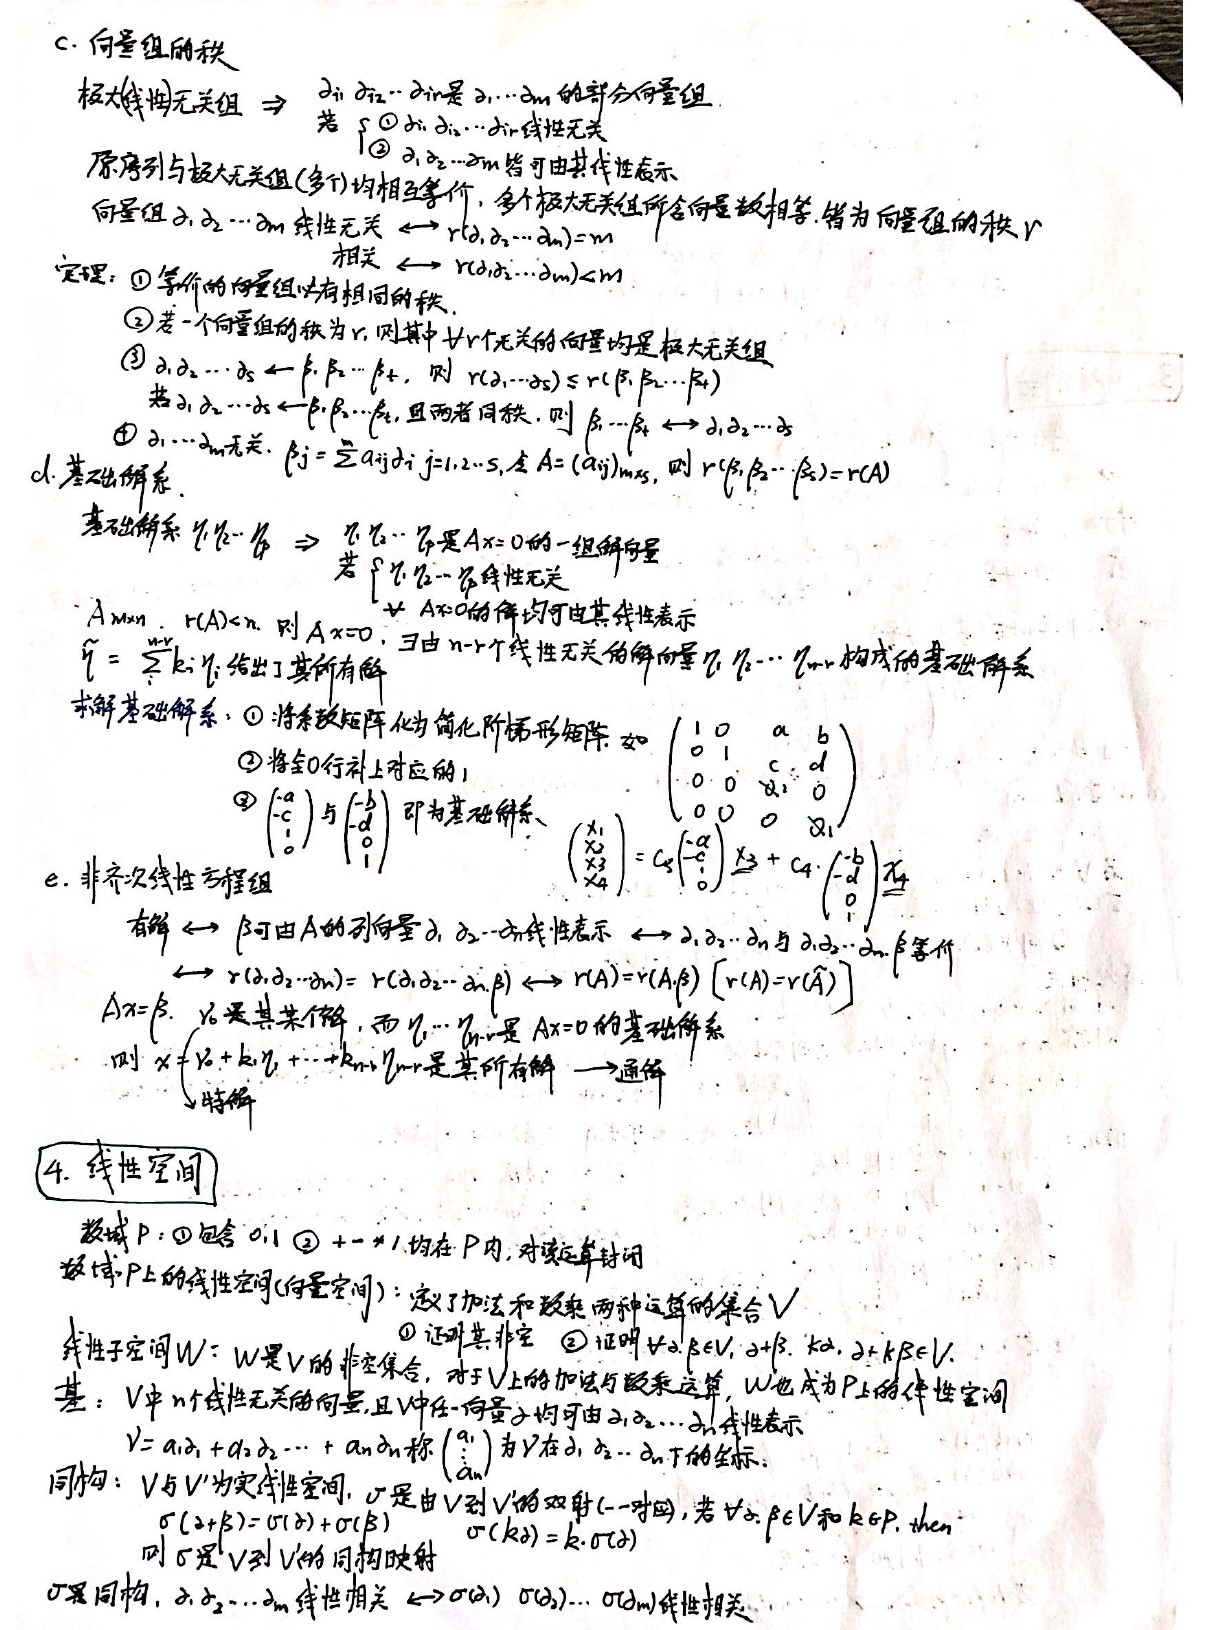 c. 向量组的秩
极大(线性)无关组 ⇒ ∂i1 ∂i2 ‥ ∂ir是 ∂1…∂m 的部分向量组
若 { ① ∂i1 ∂i2 … ∂ir 线性无关
② ∂1 ∂2 … ∂m 皆可由其线性表示
原序列与极大无关组(多个)均相互等价, 多个极大无关组所含向量数相等. 皆为向量组的秩 r
向量组 ∂1 ∂2 … ∂m 线性无关 ⟷ r(∂1 ∂2 … ∂m)=m
相关 ⟷ r(∂1 ∂2 … ∂m)<m
定理: ① 等价的向量组必有相同的秩.
② 若一个向量组的秩为 r, 则其中 ∀ r个无关的向量均是极大无关组
③ ∂1 ∂2 … ∂s ← β1 β2 … βt, 则 r(∂1…∂s) ≤ r(β1 β2 … βt)
若 ∂1 ∂2 … ∂s ← β1 β2 … βt, 且两者同秩. 则 β1 … βt ⟷ ∂1 ∂2 … ∂s
④ ∂1 … ∂m无关. βj = Σ aij ∂i j=1.2‥s, 令 A=(aij)m×s, 则 r(β1 β2 … βs)=r(A)
d. 基础解系.
基础解系 η1 η2 ‥ ηp ⇒ η1 η2 ‥ ηp 是 Ax=0 的一组解向量
若 { η1 η2 … ηp 线性无关
∀ Ax=0的解均可由其线性表示
Am×n . r(A)<n. 则 Ax=0, ∃由 n-r个线性无关的解向量 η1 η2 … ηn-r 构成的基础解系
η̃ = Σ ki ηi 给出了其所有解
求解基础解系: ① 将系数矩阵化为简化阶梯形矩阵. 如 (1 0 a b / 0 1 c d / 0 0 0 0 / 0 0 0 0)
② 将全0行补上对应的1
③ (-a -c 1 0) 与 (-b -d 0 1) 即为基础解系.
(x1 x2 x3 x4) = c3 (-a -c 1 0) x3 + c4 · (-b -d 0 1) x4
e. 非齐次线性方程组
有解 ⟷ β可由A的列向量 ∂1 ∂2 … ∂n线性表示 ⟷ ∂1 ∂2 ‥ ∂n 与 ∂1 ∂2 ‥ ∂n. β 等价
⟷ r(∂1 ∂2 … ∂n) = r(∂1 ∂2 … ∂n. β) ⟷ r(A)=r(A.β) [r(A)=r(Ã)]
Ax=β. γ0 是其某个解, 而 η1 … ηn-r是 Ax=0 的基础解系
则 x = γ0 + k1 η1 + … + kn-r ηn-r 是其所有解 → 通解
特解
4. 线性空间
数域 P: ① 包含 0,1 ② + - * / 均在 P 内, 对该运算封闭
数域P上的线性空间(向量空间): 定义了加法和数乘两种运算的集合 V
① 证明其非空 ② 证明 ∀∂.β∈V, ∂+β. k∂. ∂+kβ∈V.
线性子空间 W: W是 V 的非空集合, 对于 V上的加法与数乘运算, W也成为P上的线性空间
基: V中 n个线性无关的向量, 且 V中任一向量∂ 均可由 ∂1 ∂2 … ∂n 线性表示
γ = a1∂1 + a2∂2 … + an∂n 称 (a1 ⋮ an) 为 γ 在 ∂1 ∂2 … ∂n 下的坐标.
同构: V与V'为实线性空间, σ 是由 V 到 V'的双射(一一对应), 若 ∀∂.β∈V 和 k∈P. then
σ(∂+β)=σ(∂)+σ(β) σ(k∂)=k.σ(∂)
则 σ是 V到 V'的同构映射
σ是同构, ∂1 ∂2 … ∂m 线性相关 ⟷ σ(∂1) σ(∂2) … σ(∂m)线性相关